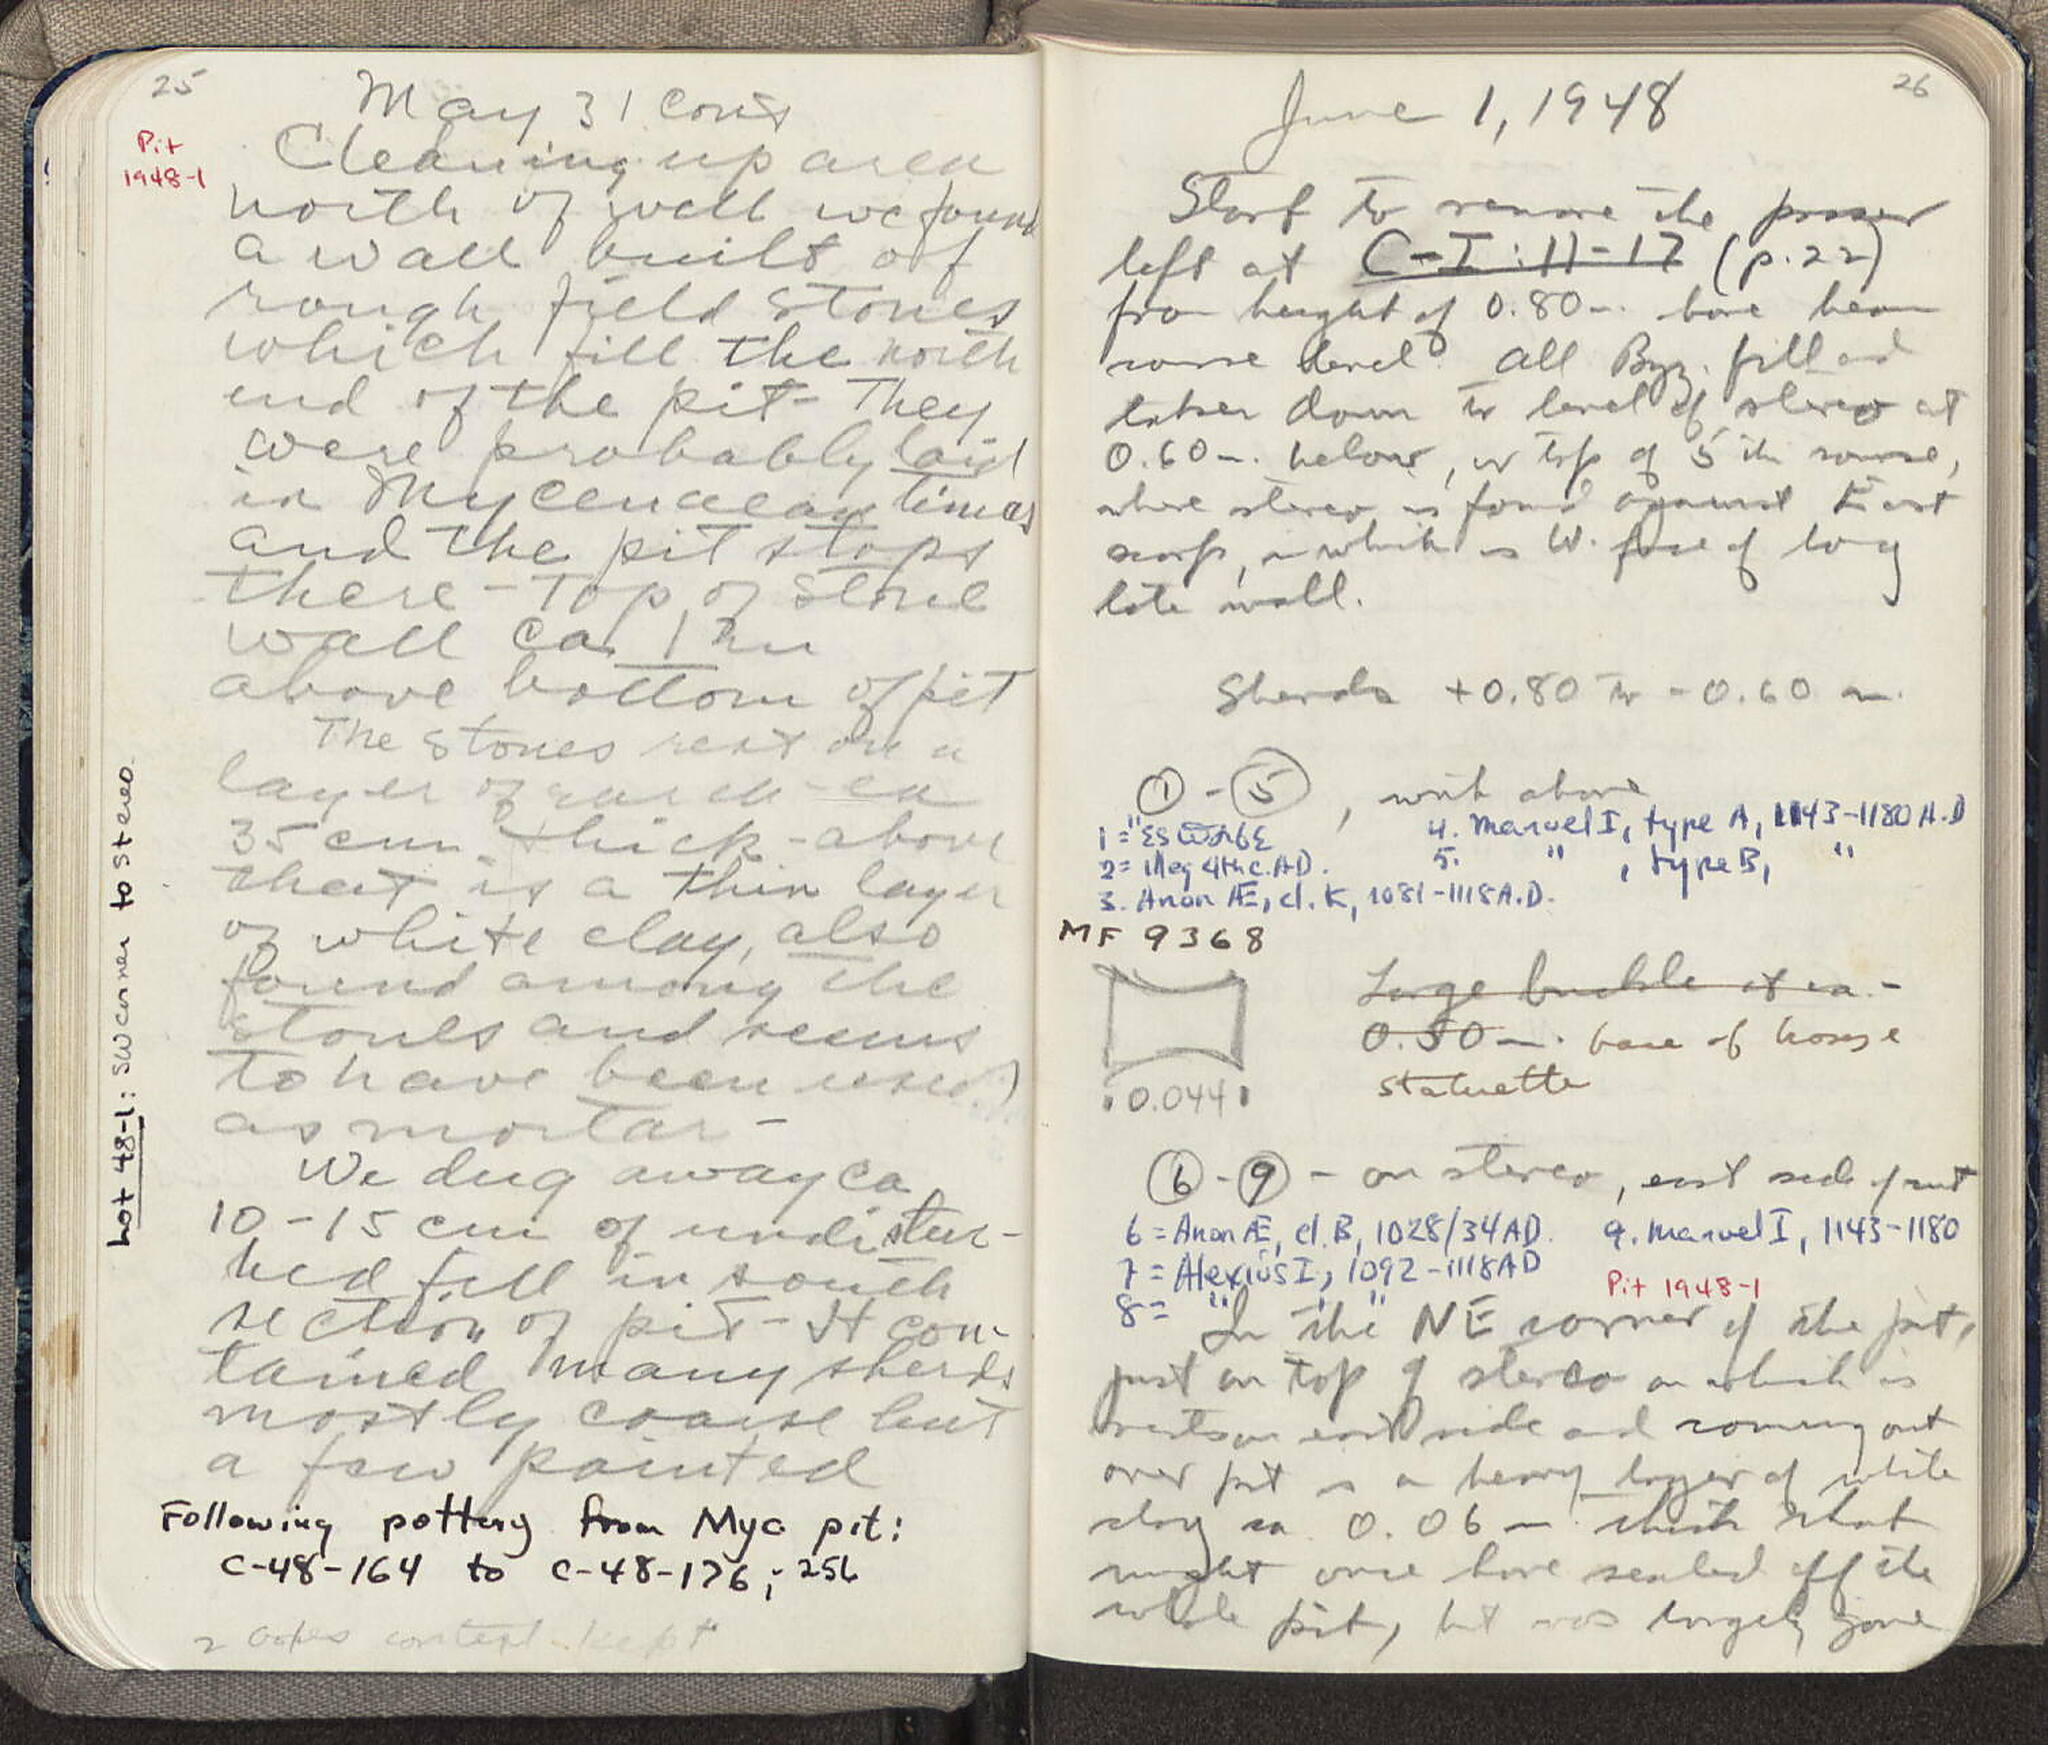 25
May 31 Con't
Pit
1948-1
Cleaning up area
north of well we found
a wall built of
rough field stones
which fill the north
end of the pit - They
were probably laid
in Mycenaean times
and the pit stops
there - Top of stone
wall ca. 1 m
above bottom of pit
The stones rest on a
layer of earth ca
35 cm thick - above
that is a thin layer
of white clay, also
found among the
stones and seems
to have been used
as mortar -
We dug away ca
10-15 cm of undistur-
bed fill in south
section of pit - It con-
tained many sherds
mostly coarse but
a few painted
Following pottery from Myc pit:
C-48-164 to C-48-176;
2 boxes context kept
Lot 48-1: SW corner to stereo.
26
June 1, 1948
Start to remove the
left at C-I:11-17 (p.22)
from height of 0.80 m.
level. All Byz. fill and
taken down to level of stereo at
0.60 m. below, or top of 5th course,
where stereo is found against East
scarp, which is W. face of long
late wall.
Sherds +0.80 to -0.60 m.
1 - 5, with above
1 =
2 = illeg 4th c. A.D.
3. Anon Æ, cl. K, 1081-1118 A.D.
4. Manuel I, type A, 1143-1180 A.D
5. " , type B, "
MF 9368
Large buckle of ca. -
0.50 m. base of horse
statuette
0.044
6 - 9 - on stereo, east side of cut
6 = Anon Æ, cl. B, 1028/34 AD.
9. Manuel I, 1143-1180
7 = Alexius I, 1092-1118 AD
8 = " " "
Pit 1948-1
In the NE corner of the pit,
just on top of stereo on which it
rests on east side and coming out
over pit is a heavy layer of white
clay ca 0.06 m. thick that
might once have sealed off the
whole pit, but was largely gone